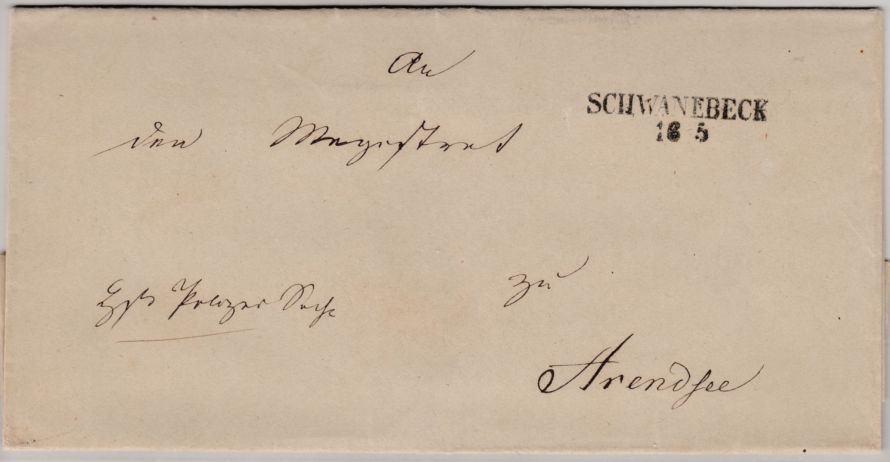 An
SCHWANEBECK
16 5
den Magistrat
zu
Polizei Sache
Arendsee